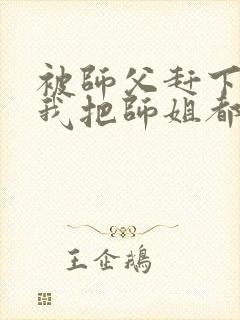 被師父赶下
我把師姐都
王企鵝